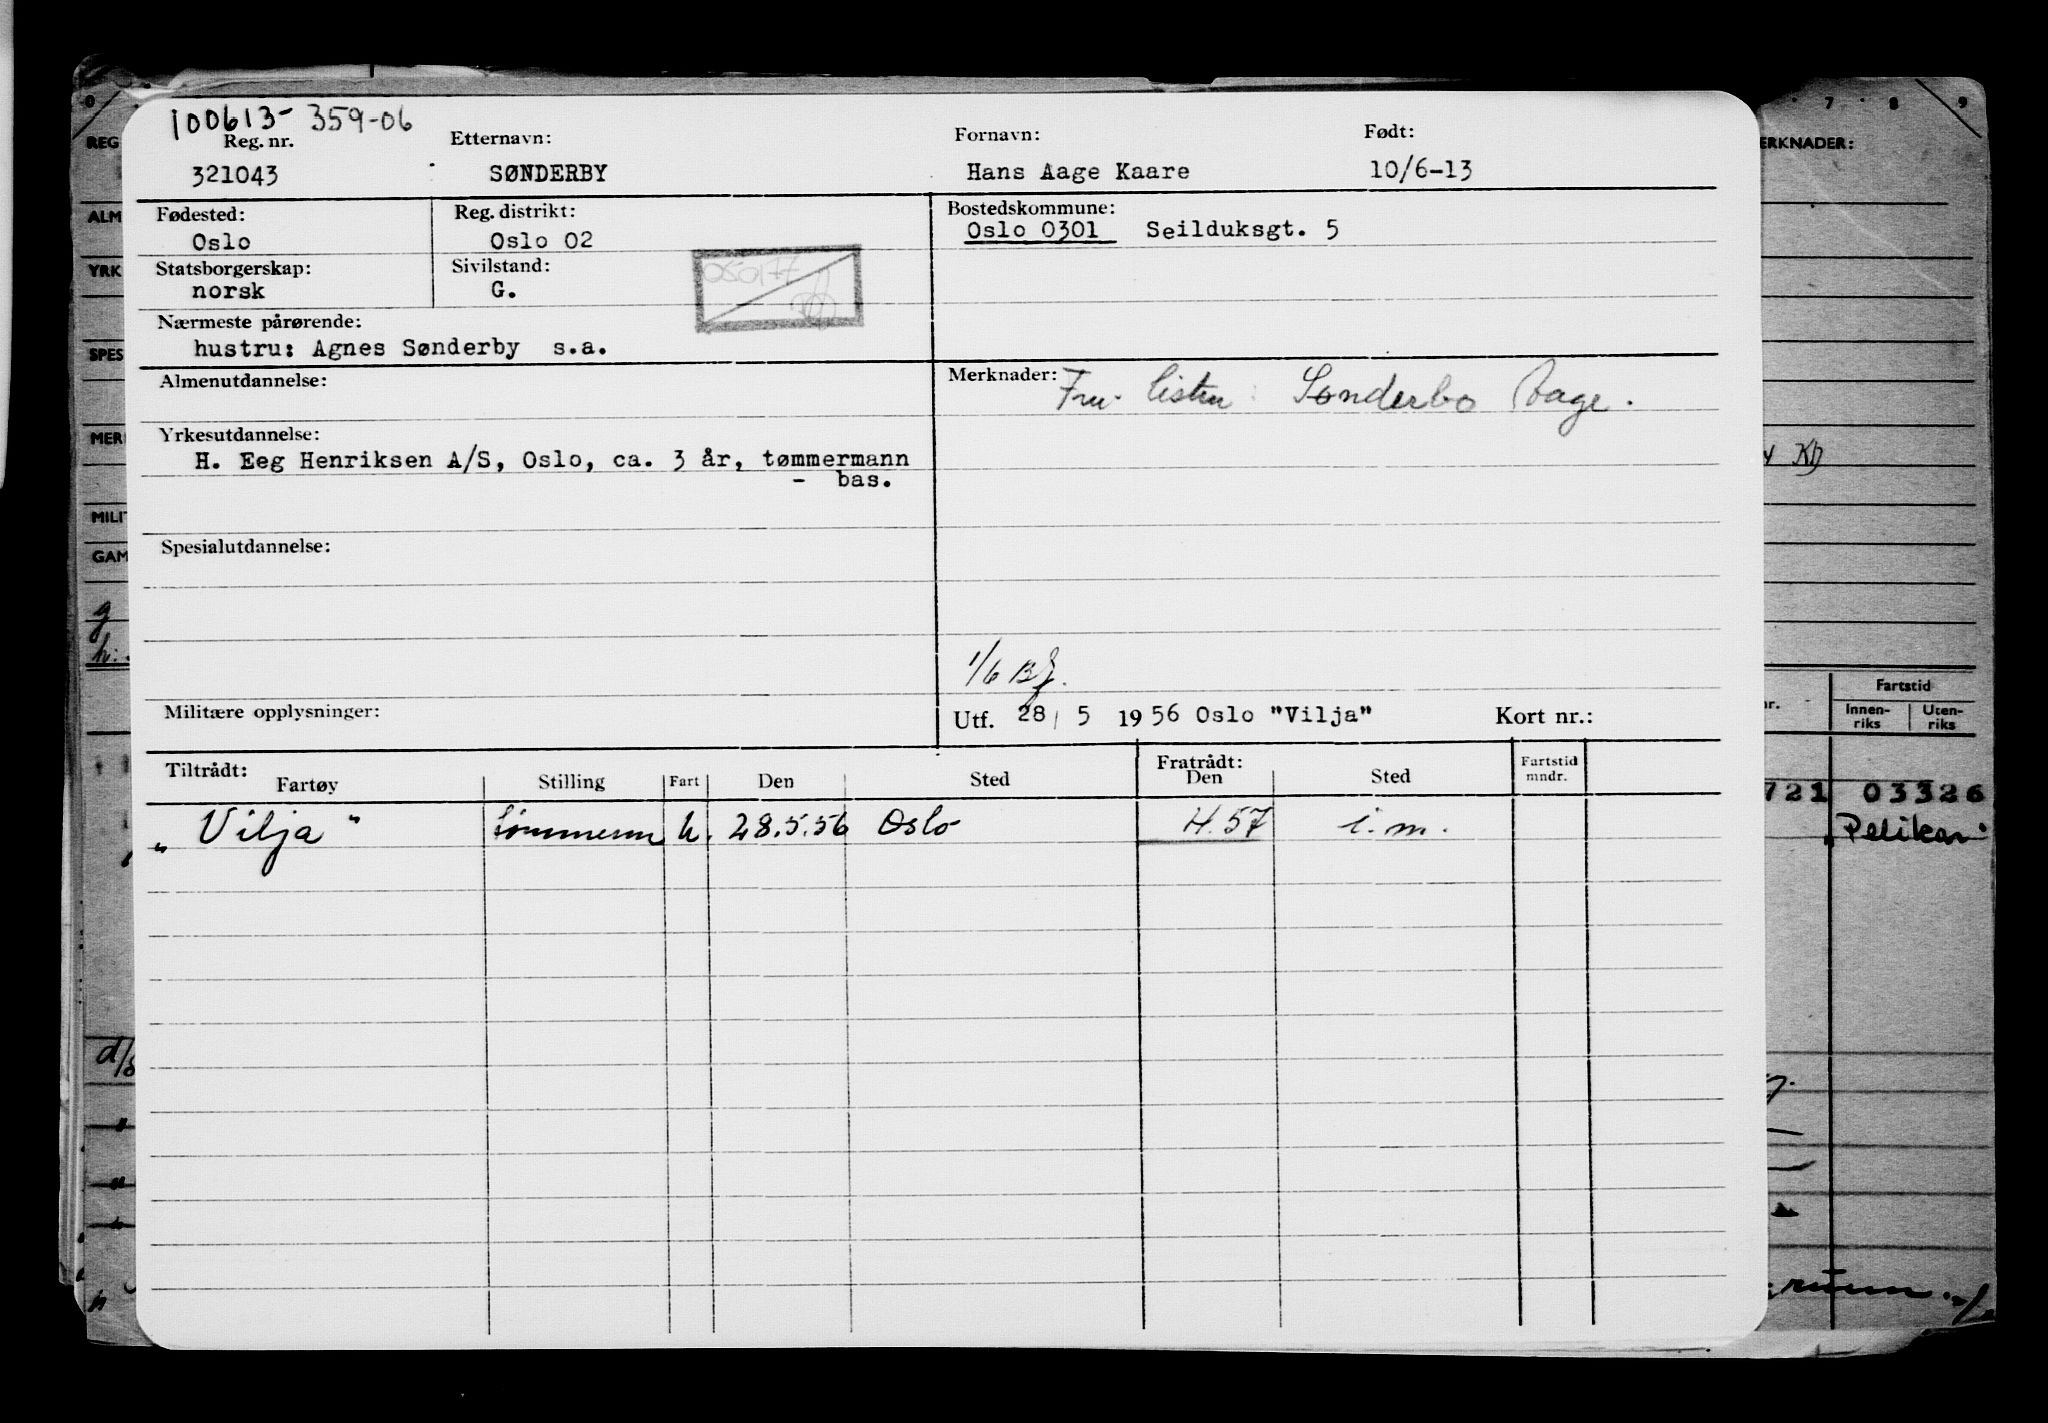 100613-359-06
Reg. nr. Etternavn: Fornavn: Født:
321043 SØNDERBY Hans Aage Kaare 10/6-13
Fødested: Reg. distrikt: Bostedskommune:
Oslo Oslo 02 Oslo 0301 Seilduksgt. 5
Statsborgerskap: Sivilstand:
norsk G.
050177
Nærmeste pårørende:
hustru: Agnes Sønderby s.a.
Almenutdannelse: Merknader: Sønderbo Aage.
Yrkesutdannelse:
H. Eeg Henriksen A/S, Oslo, ca. 3 år, tømmermann
- bas.
Spesialutdannelse:
1/6 BJ.
Militære opplysninger: Utf. 28/ 5 1956 Oslo "Vilja" Kort nr.:
Tiltrådt: Fratrådt: Fartstid
Fartøy Stilling Fart Den Sted Den Sted mndr.
„Vilja" tømmerm u. 28.5.56 Oslo 4.57 i.m.
0
REG
ALM
YRK
SPES
MER
MILI
GAM
g
h.
d/s
7 8 9
ERKNADER:
KD
nr. Fartstid
Innen- Uten-
riks riks
721 03326
„Pelikan"